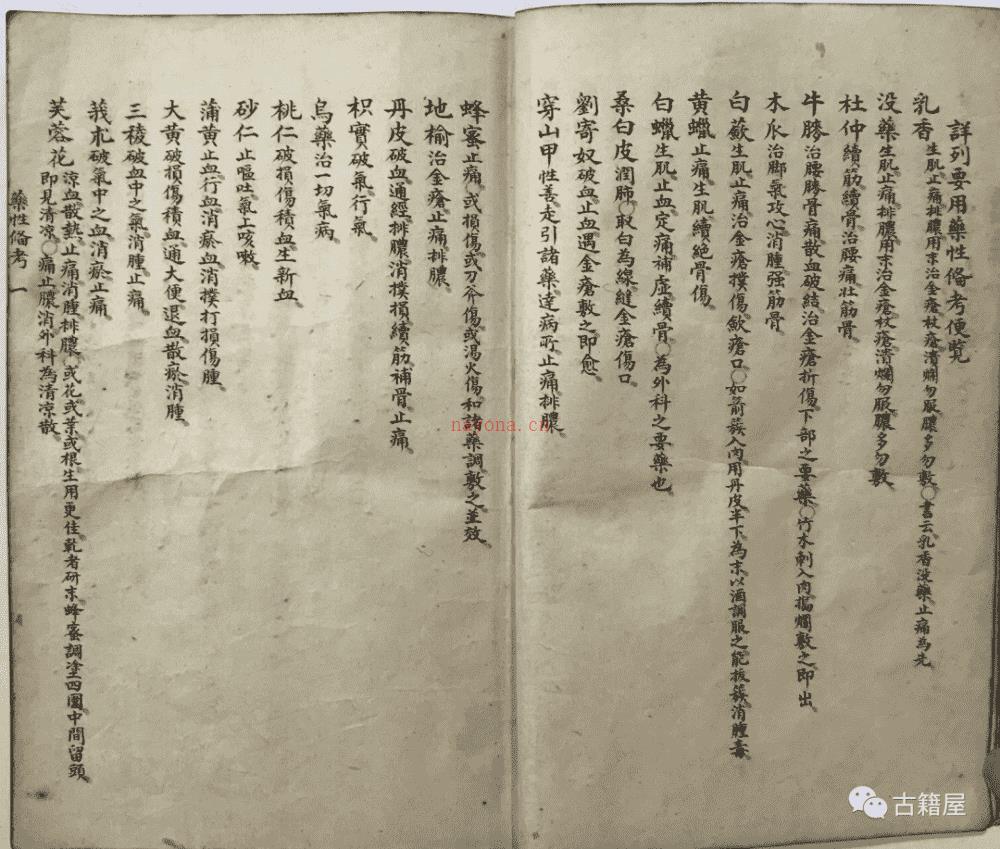 詳列要用藥性俻考便覧
乳香生肌止痛排膿用末治金瘡杖瘡潰爛勿服膿多勿敷○書云乳香没藥止痛為先
没藥生肌止痛排膿用末治金瘡杖瘡潰爛勿服膿多勿敷
杜仲續筋續骨治腰痛壮筋骨
牛膝治腰膝骨痛散血破結治金瘡折傷下部之要藥○竹木刺入肉搗爛敷之即出
木瓜治脚氣攻心消腫强筋骨
白蘞生肌止痛治金瘡撲傷歛瘡口○如箭簇入肉用丹皮半下為末以酒調服之能拔簇消腫毒
黄蠟止痛生肌續絶骨傷
白蠟生肌止血定痛補虚續骨○為外科之要藥也
桑白皮潤肺○取白為線縫金瘡傷口
劉寄奴破血止血遇金瘡敷之即愈
穿山甲性善走引諸藥達病所止痛排膿
蜂蜜止痛或損傷或刀斧傷或湯火傷和諸藥調敷之並效
地榆治金瘡止痛排膿
丹皮破血通經排膿消撲損續筋補骨止痛
枳實破氣行氣
烏藥治一切氣病
桃仁破損傷積血生新血
砂仁止嘔吐氣上咳嗽
蒲黄止血行血消瘀血消撲打損傷腫
大黄破損傷積血通大便退血散瘀消腫
三稜破血中之氣消腫止痛
莪朮破氣中之血消瘀止痛
芙蓉花涼血散熱止痛消腫排膿○或花或葉或根生用更佳乾者研末蜂蜜調塗四圍中間留頭
即見清凉○痛止膿消外科為清凉散
藥性俻考 一
nayona.cn
古籍屋